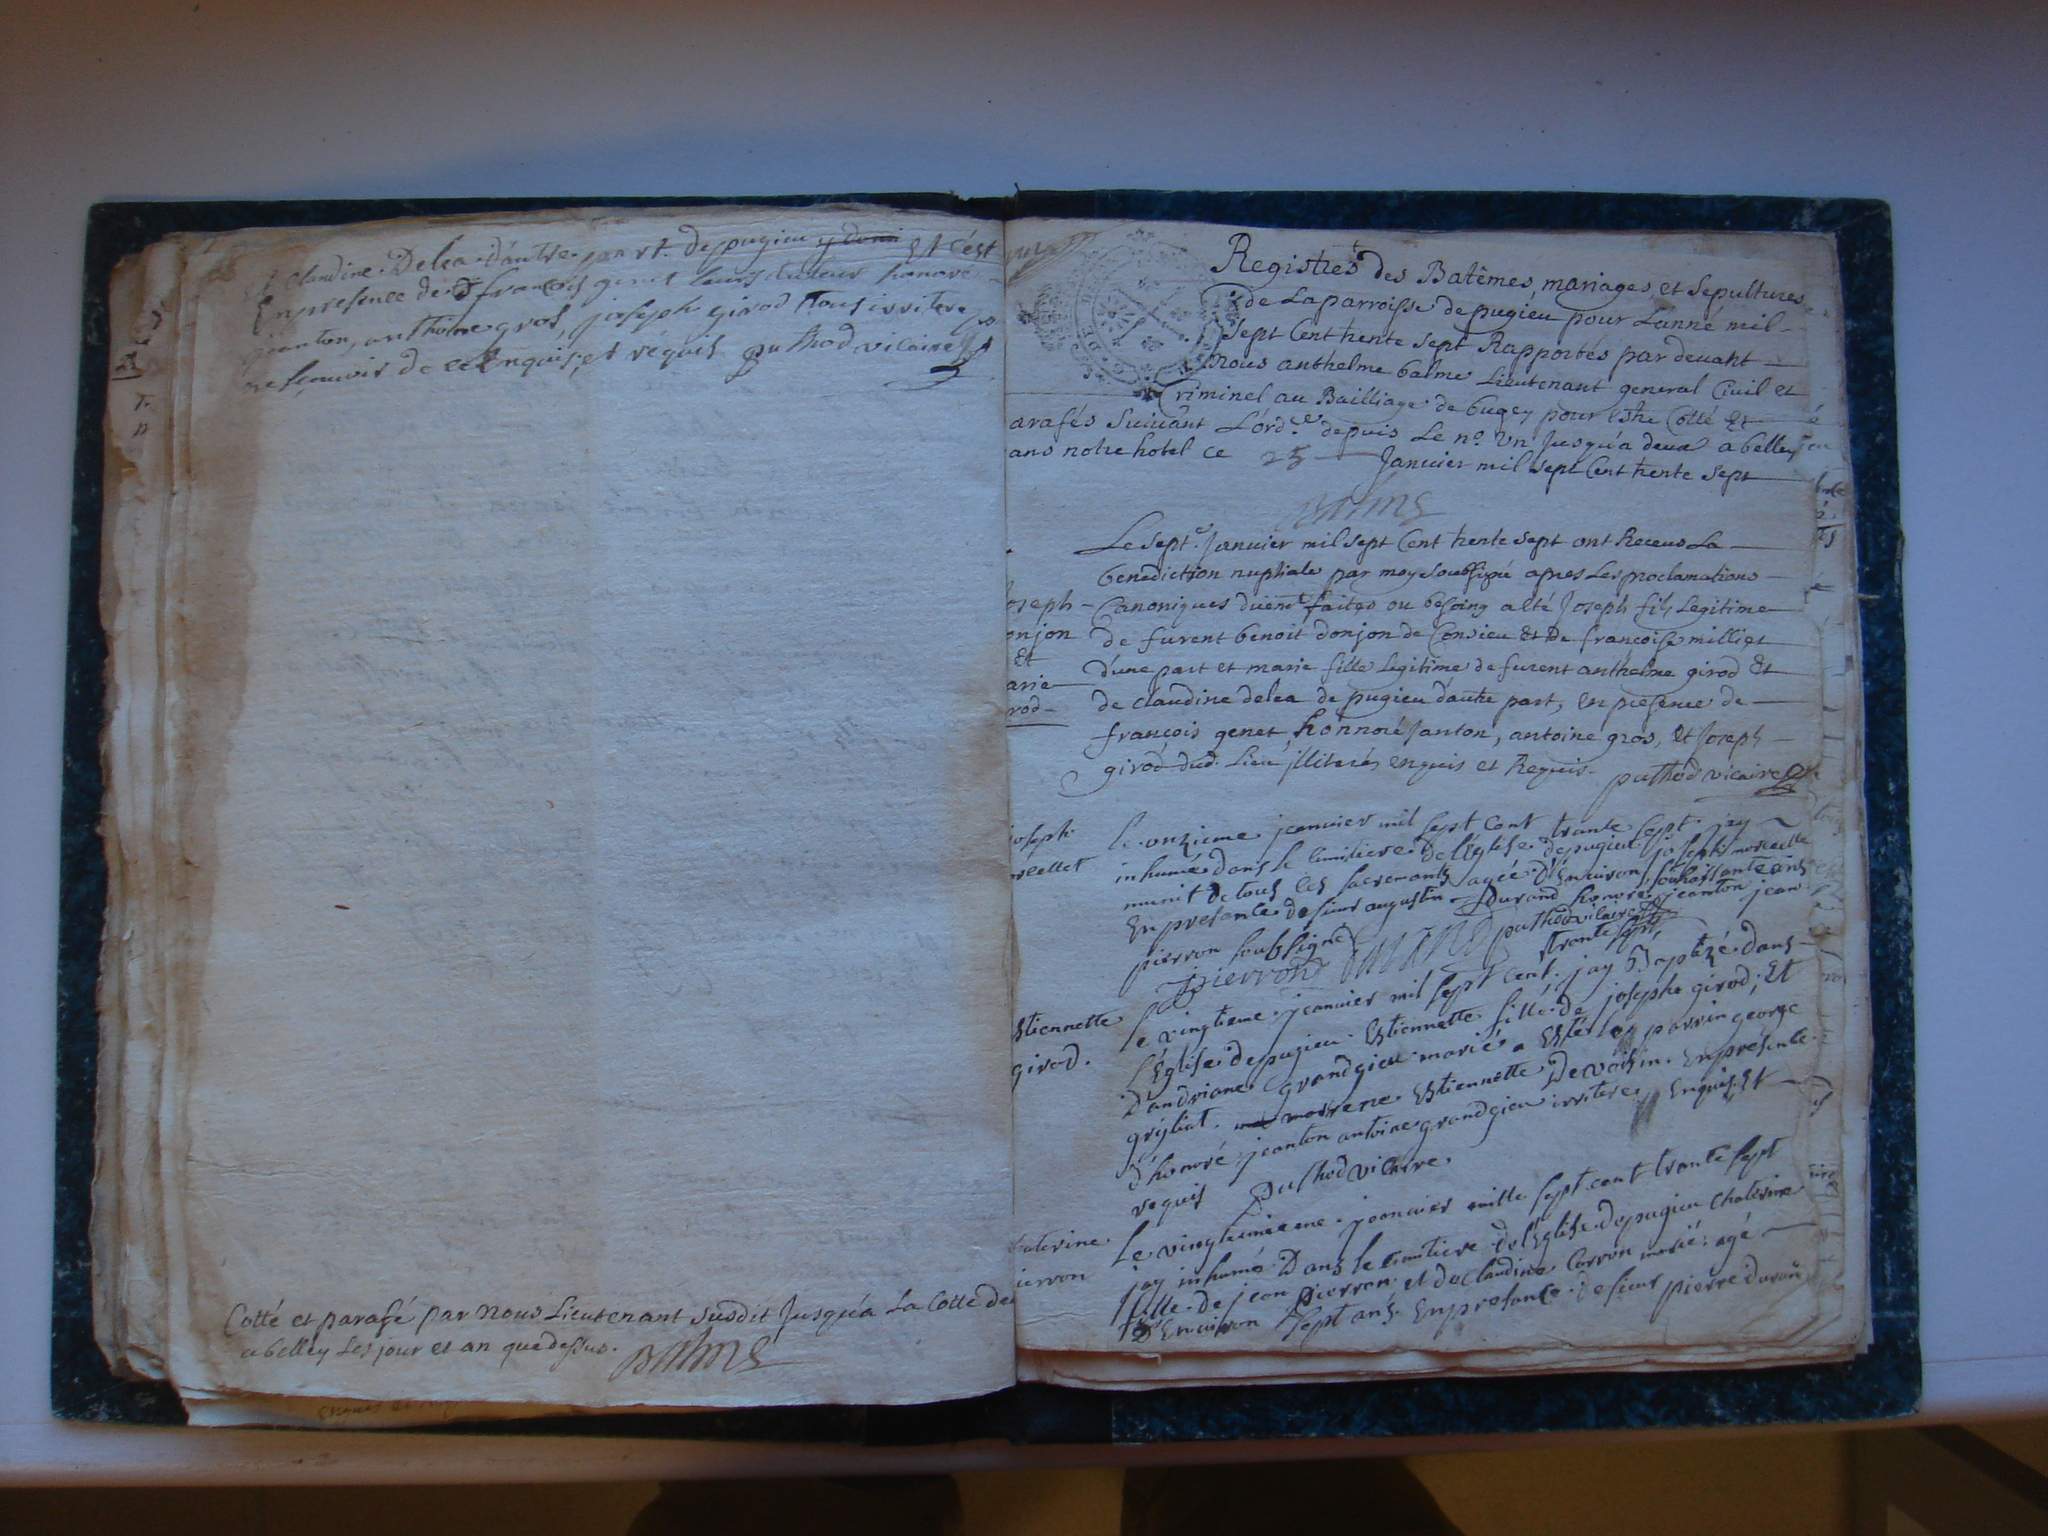 Et Claudine Delea D'autre part. depugieu y demi Et c'est
En presence de françois genet leurs tuteur honoré
jeanton, anthoine gros, joseph girod tous irritere
ne sçauoir de ce Enquis, et requis puthod vicaire
Cotté et parafé par nous Lieutenant susdit Jusqu'a La Cotte de
a belley Les jour et an que dessus.
Balme
Registres des Batêmes, mariages, et Sepultures
de Laparroisse de pugieu pour Lanné mil
Sept Cent trente Sept Rapportés par deuant
Nous anthelme balme Lieutenant general Ciuil et
Criminel au Bailliage de bugey pour estre Cotté Et
arafés Suiuant L'ord.ce depuis Le n.o Un Jusqu'a deux a belley
ans notre hotel ce 25 Januier mil sept Cent trente sept
Balme
Le sept.e Januier mil sept Cent trente sept ont Receus La
benediction nuptiale par moy soubsigné apres Les proclamations
oseph Canoniques düem.t faites ou besoing a eté Joseph fils Legitime
onjon de furent benoit donjon de Consieu Et De francoise milliet
Et
arie d'une part et marie fille Legitime de furent anthelme girod Et
rod de claudine delea de pugieu d'autre part, en presence de
françois genet, honnoré Janton, antoine gros, Et Joseph
girod dud. Lieu jlliterés enquis et Requis. puthod vicaire
joseph Le onzieme jeanuier mil sept cent trante sept. jay
inhumé dans le simitiere de l'Eglise depugieu joseph morcellet
munit de tous les sacrements agée d'Enuiron soixassante ans
En presence de sieur augustin Durand honoré jeanton jean
pierron soubsigné puthod vicaire
pierron Durand
trante sept,
Estiennette Le vingtieme jeanuier mil sept cent. jay Baptizé dans
girod. l'Eglise depugieu. Estiennette fille de josephe girod, Et
D'andriane grandgieu marié a Esté le parrin george
grijliat. marrene Estiennette Devoisin. En presence
d'honoré jeanton antoine grandgieu irritere, Enquis, Et
requis puthod vicaire.
aterine. Le vingteunieme jeanuier mille sept cent trante sept
ierron jay inhumé Dans le simitiere de l'Eglise depugieu Chaterine
fille de jean pierron et de Claudine Corron marié: agé
D'Enuiron sept ans. En presence de sieur pierre duran